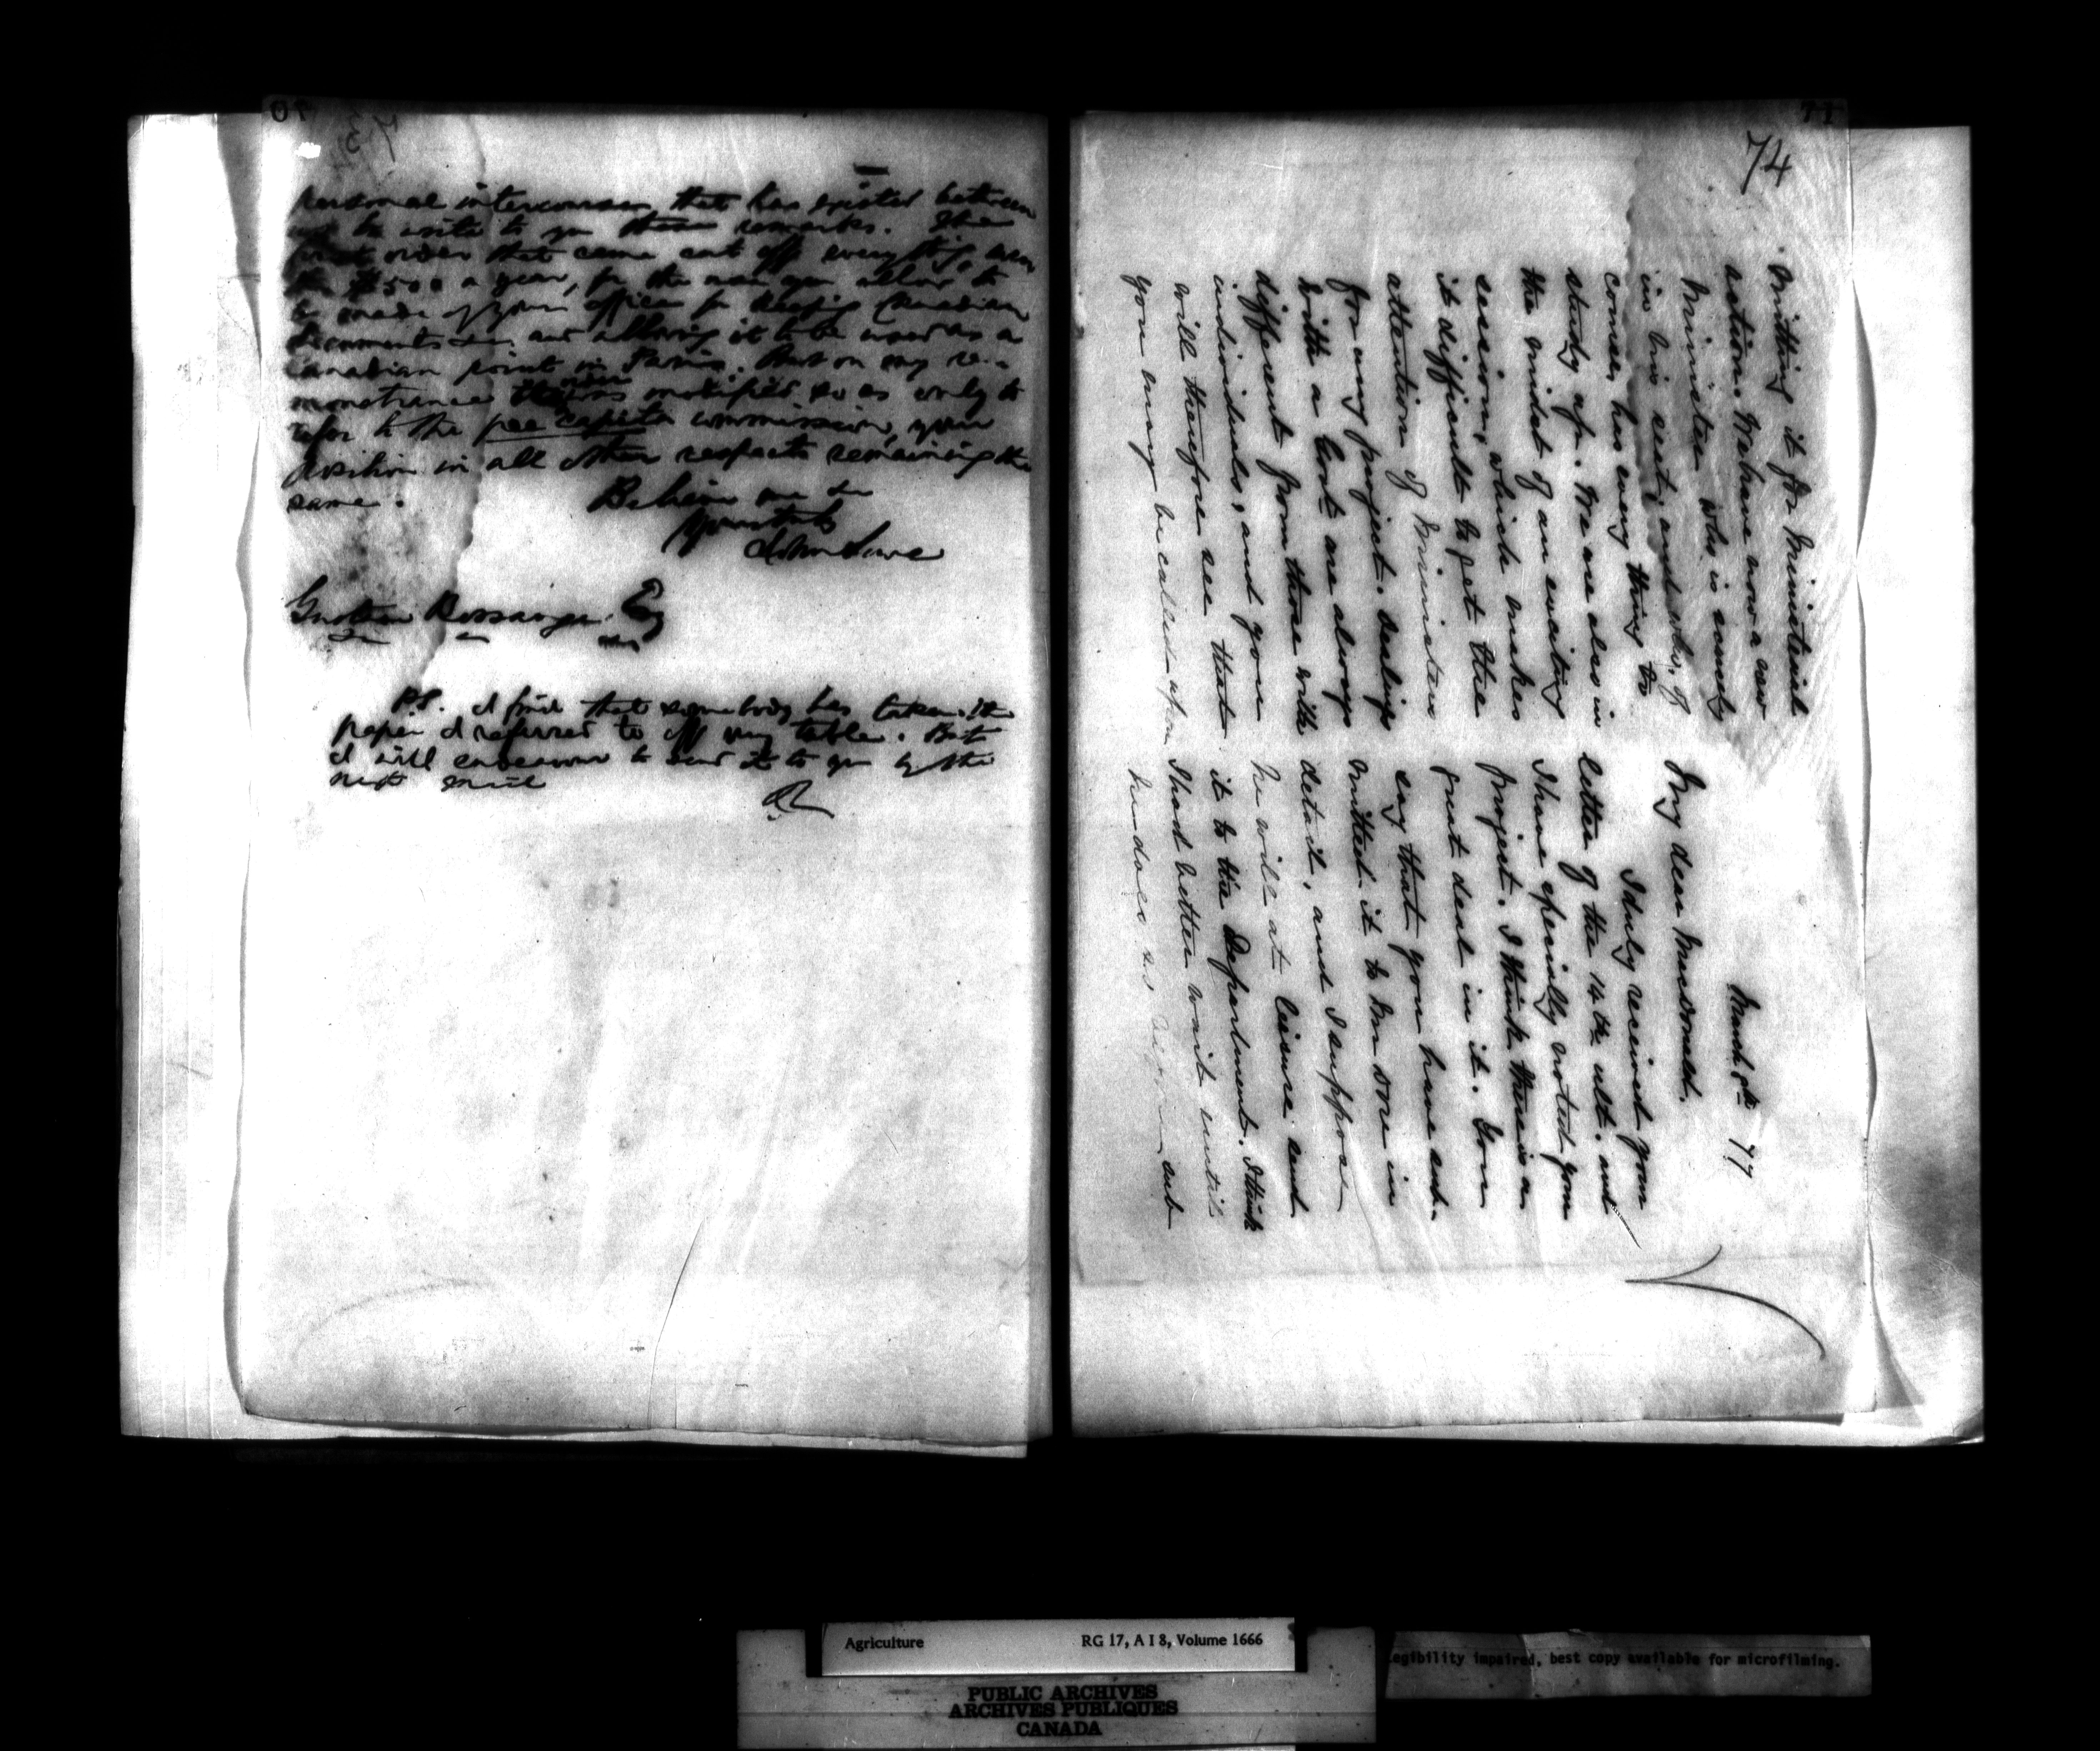 70
personal intercourse that has existed between
us to write to you these remarks. The
first order that came cut off everything, even
the $500 a year, for the use you allow to
be made of your office for keeping Canadian
documents &c, and allowing it to be used as a
Canadian point in Paris. But on my re-
monstrance the order was modified so as only to
refer to the per capita commission, your
position in all other respects remaining the
same.
Believe me &c
Yours truly
John Lowe
Gustave Bossange Esq
PS. I find that somebody has taken the
paper I referred to off my table. But
I will endeavour to send it to you by the
next mail
JL
71
74
March 8th 77
My dear Macdonald,
I duly received your
letter of the 14th ult. and
I have specially noted your
project. I think there is a
great deal in it. You
say that you have sub-
mitted it to Dore in
detail, and I suppose
he will at leisure submit
it to the Department. I think
I had better wait until
he does so
mitting it for Ministerial
action. We have now a new
Minister who is scarcely
in his seat, and who, of
course, has every thing to
study up. We are also in
the midst of an exciting
session, which makes
it difficult to get the
attention of Ministers
for any project. Dealings
with a Govt are always
different from those with
individuals, and you
will therefore see that
you may be called upon
Agriculture
RG 17, A I 8, Volume 1666
PUBLIC ARCHIVES
ARCHIVES PUBLIQUES
CANADA
egibility impaired, best copy available for microfilming.